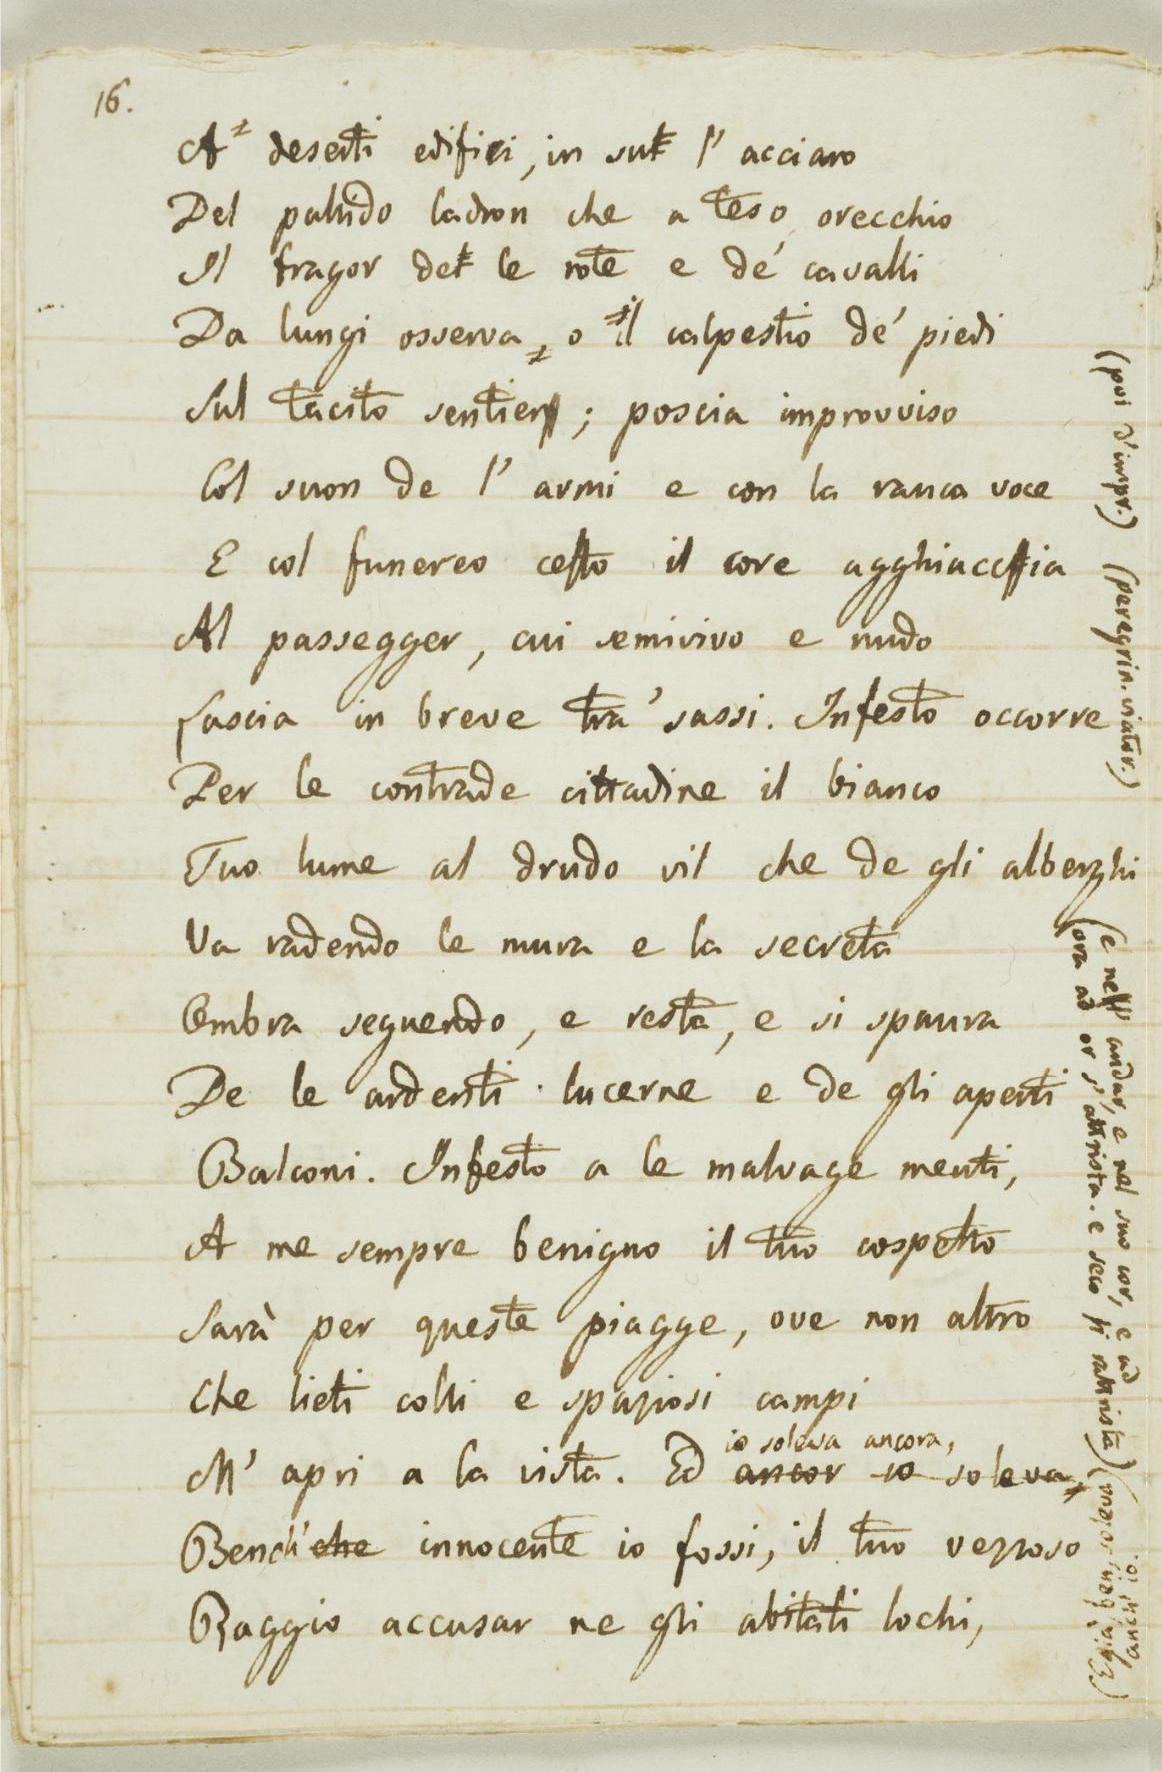 16.
A deserti edifici, in su l' acciaro
Del pallido ladron che a teso orecchio
Il fragor de le rote e de' cavalli
Da lungi osserva, o il calpestio de' piedi
Sul tacito sentier; poscia improvviso
Col suon de l' armi e con la rauca voce
E col funereo ceffo il core agghiaccia
Al passegger, cui semivivo e nudo
Lascia in breve tra' sassi. Infesto occorre
Per le contrade cittadine il bianco
Tuo lume al drudo vil che de gli alberghi
Va radendo le mura e la secreta
Ombra seguendo, e resta, e si spaura
De le ardenti lucerne e de gli aperti
Balconi. Infesto a le malvage menti,
A me sempre benigno il tuo cospetto
Sarà per queste piagge, ove non altro
Che lieti colli e spaziosi campi
io soleva ancora,
M' apri a la vista. Ed ancor io soleva,
Bench' che innocente io fossi, il tuo vezzoso
Raggio accusar ne gli abitati lochi,
(poi d'impr.) (peregrin. viator.)
(e nell' andar, e nel suo cor, e ad
ora ad or s' attrista. e seco si rattrista)